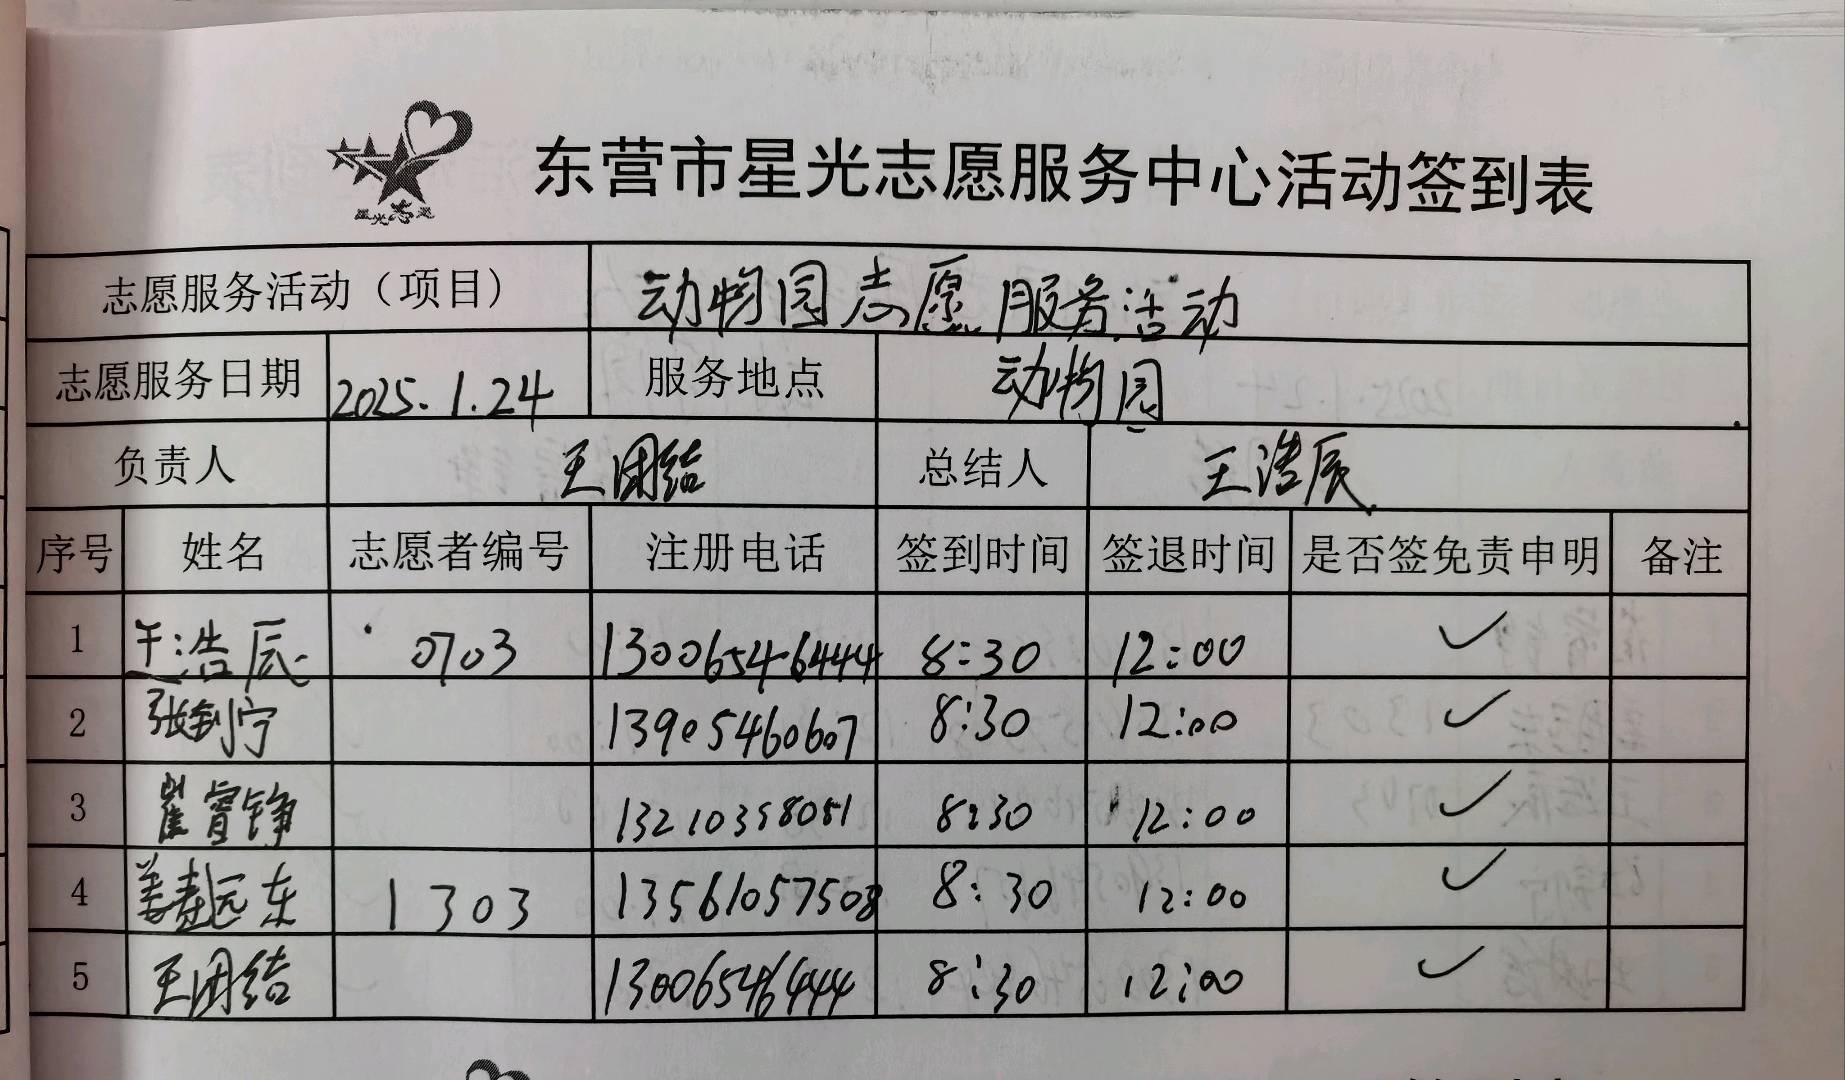 星光志愿
东营市星光志愿服务中心活动签到表
志愿服务活动（项目） 动物园志愿服务活动
志愿服务日期 2025.1.24 服务地点 动物园
负责人 王团结 总结人 王浩辰
序号 姓名 志愿者编号 注册电话 签到时间 签退时间 是否签免责申明 备注
1 王浩辰 0703 13006546444 8:30 12:00 ✓
2 张钊宁 13905460607 8:30 12:00 ✓
3 崔睿铮 13210358051 8:30 12:00 ✓
4 姜远东 1303 13561057508 8:30 12:00 ✓
5 王团结 13006546444 8:30 12:00 ✓